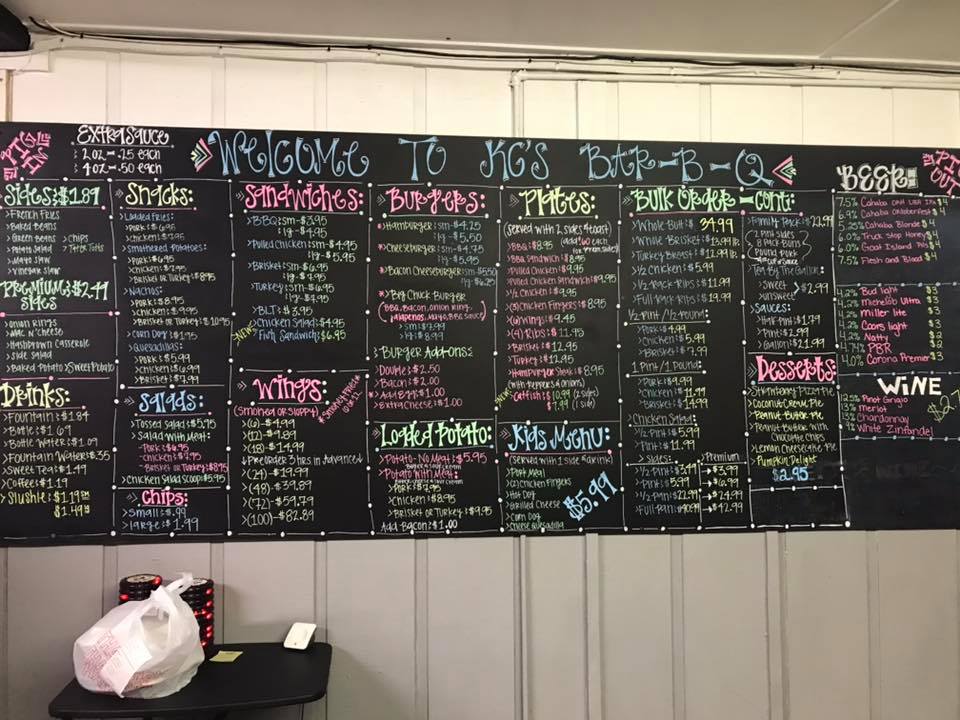 PIG IN
EXTRA SAUCE
2 oz - .25 each
4 oz - .50 each
WELCOME TO KG'S BAR-B-Q
PIG OUT
Sides: $1.89
French Fries
Baked Beans
Green Beans
Chips
Potato Salad
Tater Tots
Mayo Slaw
Vinegar Slaw
Premium: $2.49
Sides
Onion Rings
Mac n' Cheese
Hashbrown Casserole
Side Salad
Baked Potato
Sweet Potato
Drinks:
Fountain: $1.84
Bottle: $1.69
Bottle Water: $1.09
Fountain Water: $.35
Sweet Tea: $1.49
Coffee: $1.19
Slushie: $1.19
$1.49
Snacks:
Loaded Fries:
Pork: $6.95
Chicken: $7.95
Smothered Potatoes:
Pork: $6.95
Chicken: $7.95
Brisket or Turkey: $8.95
Nachos:
Pork: $8.95
Chicken: $9.95
Brisket or Turkey: $10.95
Corn Dog: $1.95
Quesadillas:
Pork: $5.99
Chicken: $6.99
Brisket: $7.99
Salads:
Tossed Salad: $3.75
Salad with Meat:
Pork: $6.95
Chicken: $7.95
Brisket or Turkey: $8.95
Chicken Salad Scoop: $5.95
Chips:
Small: $.99
Large: $1.99
Sandwiches:
BBQ: sm - $3.95
lg - $4.95
Pulled Chicken: sm - $4.95
lg - $5.95
Brisket: sm - $5.95
lg - $6.95
Turkey: sm - $6.95
lg - $7.95
BLT: $3.95
Chicken Salad: $4.95
NEW
Fish Sandwich: $6.95
Wings:
(Smoked or Sloppy)
(6) - $4.99
(12) - $9.89
(18) - $14.99
Preorder 3 hrs in Advance
(24)
(48) - $39.89
(72) - $59.79
(100) - $82.89
Burgers:
Hamburger: sm - $4.25
lg - $5.50
Cheeseburger: sm - $4.75
lg - $5.95
Bacon Cheeseburger: sm $5.50
lg - $6.25
Big Chuck Burger
(BBQ, Bacon, Onion Ring,
Jalapenos, Mayo, BBQ Sauce)
sm: $7.99
lg: $8.99
Burger Add-ons:
Double: $2.50
Bacon: $2.00
Add BBQ: $1.00
Extra Cheese: $1.00
Loaded Potato:
Potato - No Meat: $5.95
Potato with Meat:
Pork: $7.95
Chicken: $8.95
Brisket or Turkey: $9.95
Add Bacon: $1.00
Plates:
(Served with 2 sides & toast)
BBQ: $8.95
BBQ Sandwich: $8.95
Pulled Chicken: $9.95
Pulled Chicken Sandwich: $9.95
1/2 Chicken: $9.95
(3) Chicken Fingers: $8.95
(6) Wings: $9.45
(4) Ribs: $11.95
Brisket: $12.95
Turkey: $12.95
Hamburger Steak: $8.95
(with peppers & onions)
Catfish: $10.99 (2 sides)
$7.99 (1 side)
Kids Menu:
(Served with 1 side & drink)
Pork Meal
(2) Chicken Fingers
Hot Dog
Grilled Cheese
Corn Dog
Cheese Quesadilla
$5.99
Bulk Order - cont:
Whole Butt: $34.99
Whole Brisket: $13.99 lb.
Turkey Breast: $11.99 lb.
1/2 Chicken: $5.99
1/2 Rack Ribs: $11.99
Full Rack Ribs: $19.99
1/2 Pint / 1/2 Pound:
Pork: $4.99
Chicken: $5.99
Brisket: $7.99
1 Pint / 1 Pound:
Pork: $9.99
Chicken: $11.99
Brisket: $14.99
Chicken Salad:
1/2 Pint: $5.99
Pint: $11.99
Sides:
Premium
1/2 Pint: $3.99
$3.99
Pint: $5.99
$6.99
1/2 Pan: $22.99
$24.99
Full Pan: $40.99
$42.99
Family Pack: $22.99
2 Pint Sides
8 Pack Buns
Pound Pork
Tea By The Gallon:
Sweet
Unsweet
$2.99
Sauces:
Half Pint: $1.79
Gallon: $21.99
Desserts:
Coconut Cream Pie
Peanut Butter Pie
Peanut Butter with
Chocolate Chips
Lemon Cheese Cake
Pumpkin Delight
$2.95
BEER:
7.5% Cahaba Oka Uba IPA $4
6.9% Cahaba Oktoberfest $4
5.25% Cahaba Blonde $4
6.2% Truck Stop Honey $4
6.0% Goat Island $4
7.5% Flesh and Blood $4
4.2% Bud light $3
4.2% Michelob Ultra $3
4.2% Miller lite $3
4.2% Coors light $3
4.2% Natty $2
4.74% PBR $2
4.0% Corona Premier $3
WINE
Pinot Grigio
Merlot
Chardonnay
White Zinfandel